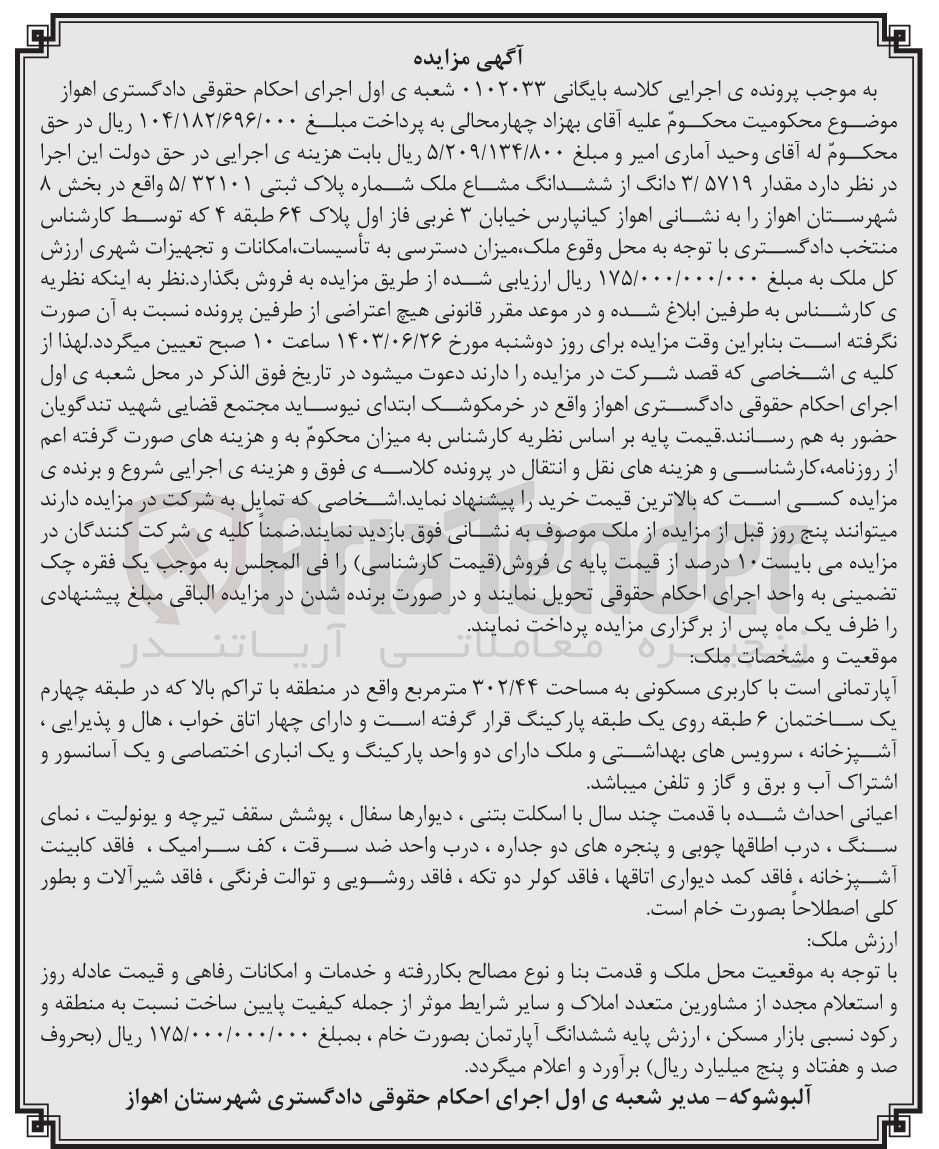 آگهی مزایده
به موجب پرونده ی اجرایی کلاسه بایگانی ۰۱۰۲۰۳۳ شعبه ی اول اجرای احکام حقوقی دادگستری اهواز
موضوع محکومیت محکومٌ علیه آقای بهزاد چهارمحالی به پرداخت مبلغ ۱۰۴/۱۸۲/۶۹۶/۰۰۰ ریال در حق
محکومٌ له آقای وحید آماری امیر و مبلغ ۵/۲۰۹/۱۳۴/۸۰۰ ریال بابت هزینه ی اجرایی در حق دولت این اجرا
در نظر دارد مقدار ۵۷۱۹ /۳ دانگ از ششدانگ مشاع ملک شماره پلاک ثبتی ۳۲۱۰۱ /۵ واقع در بخش ۸
شهرستان اهواز را به نشانی اهواز کیانپارس خیابان ۳ غربی فاز اول پلاک ۶۴ طبقه ۴ که توسط کارشناس
منتخب دادگستری با توجه به محل وقوع ملک،میزان دسترسی به تأسیسات،امکانات و تجهیزات شهری ارزش
کل ملک به مبلغ ۱۷۵/۰۰۰/۰۰۰/۰۰۰ ریال ارزیابی شده از طریق مزایده به فروش بگذارد.نظر به اینکه نظریه
ی کارشناس به طرفین ابلاغ شده و در موعد مقرر قانونی هیچ اعتراضی از طرفین پرونده نسبت به آن صورت
نگرفته است بنابراین وقت مزایده برای روز دوشنبه مورخ ۱۴۰۳/۰۶/۲۶ ساعت ۱۰ صبح تعیین میگردد.لهذا از
کلیه ی اشخاصی که قصد شرکت در مزایده را دارند دعوت میشود در تاریخ فوق الذکر در محل شعبه ی اول
اجرای احکام حقوقی دادگستری اهواز واقع در خرمکوشک ابتدای نیوساید مجتمع قضایی شهید تندگویان
حضور به هم رسانند.قیمت پایه بر اساس نظریه کارشناس به میزان محکومٌ به و هزینه های صورت گرفته اعم
از روزنامه،کارشناسی و هزینه های نقل و انتقال در پرونده کلاسه ی فوق و هزینه ی اجرایی شروع و برنده ی
مزایده کسی است که بالاترین قیمت خرید را پیشنهاد نماید.اشخاصی که تمایل به شرکت در مزایده دارند
میتوانند پنج روز قبل از مزایده از ملک موصوف به نشانی فوق بازدید نمایند.ضمناً کلیه ی شرکت کنندگان در
مزایده می بایست۱۰ درصد از قیمت پایه ی فروش(قیمت کارشناسی) را فی المجلس به موجب یک فقره چک
تضمینی به واحد اجرای احکام حقوقی تحویل نمایند و در صورت برنده شدن در مزایده الباقی مبلغ پیشنهادی
را ظرف یک ماه پس از برگزاری مزایده پرداخت نمایند.
AriaTender
زنجیره معاملاتی آریاتندر
موقعیت و مشخصات ملک:
آپارتمانی است با کاربری مسکونی به مساحت ۳۰۲/۴۴ مترمربع واقع در منطقه با تراکم بالا که در طبقه چهارم
یک ساختمان ۶ طبقه روی یک طبقه پارکینگ قرار گرفته است و دارای چهار اتاق خواب ، هال و پذیرایی ،
آشپزخانه ، سرویس های بهداشتی و ملک دارای دو واحد پارکینگ و یک انباری اختصاصی و یک آسانسور و
اشتراک آب و برق و گاز و تلفن میباشد.
اعیانی احداث شده با قدمت چند سال با اسکلت بتنی ، دیوارها سفال ، پوشش سقف تیرچه و یونولیت ، نمای
سنگ ، درب اطاقها چوبی و پنجره های دو جداره ، درب واحد ضد سرقت ، کف سرامیک ، فاقد کابینت
آشپزخانه ، فاقد کمد دیواری اتاقها ، فاقد کولر دو تکه ، فاقد روشویی و توالت فرنگی ، فاقد شیرآلات و بطور
کلی اصطلاحاً بصورت خام است.
ارزش ملک:
با توجه به موقعیت محل ملک و قدمت بنا و نوع مصالح بکاررفته و خدمات و امکانات رفاهی و قیمت عادله روز
و استعلام مجدد از مشاورین متعدد املاک و سایر شرایط موثر از جمله کیفیت پایین ساخت نسبت به منطقه و
رکود نسبی بازار مسکن ، ارزش پایه ششدانگ آپارتمان بصورت خام ، بمبلغ ۱۷۵/۰۰۰/۰۰۰/۰۰۰ ریال (بحروف
صد و هفتاد و پنج میلیارد ریال) برآورد و اعلام میگردد.
آلبوشوکه- مدیر شعبه ی اول اجرای احکام حقوقی دادگستری شهرستان اهواز